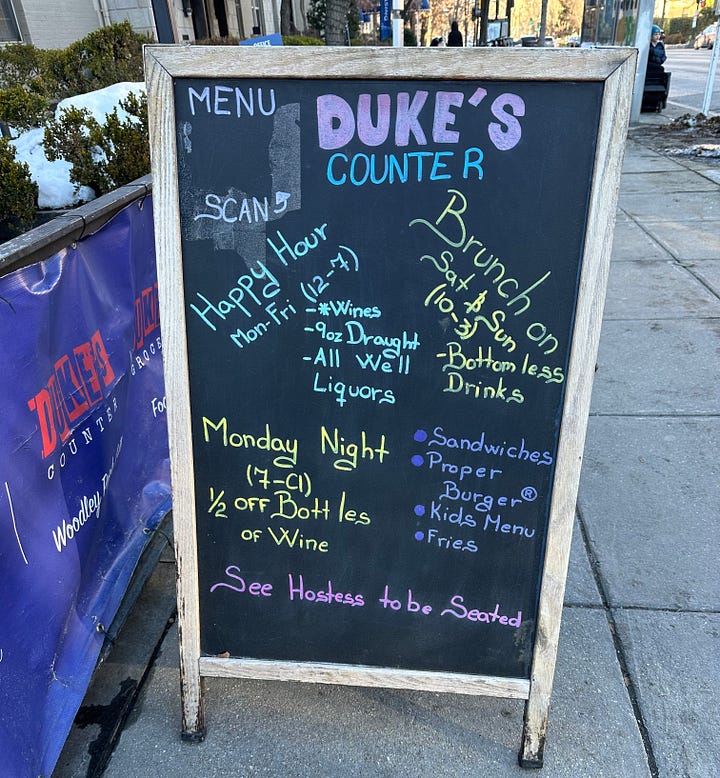 MENU
DUKE'S
COUNTER
SCAN
Happy Hour
Mon-Fri (12-7)
-*Wines
-9oz Draught
-All We'll
Liquors
Brunch on
Sat & Sun
(10-3)
-Bottomless
Drinks
Monday Night
(7-Cl)
1/2 OFF Bottles
of Wine
Sandwiches
Proper
Burger®
Kids Menu
Fries
See Hostess to be Seated
DUKE'S
COUNTER
Woodley